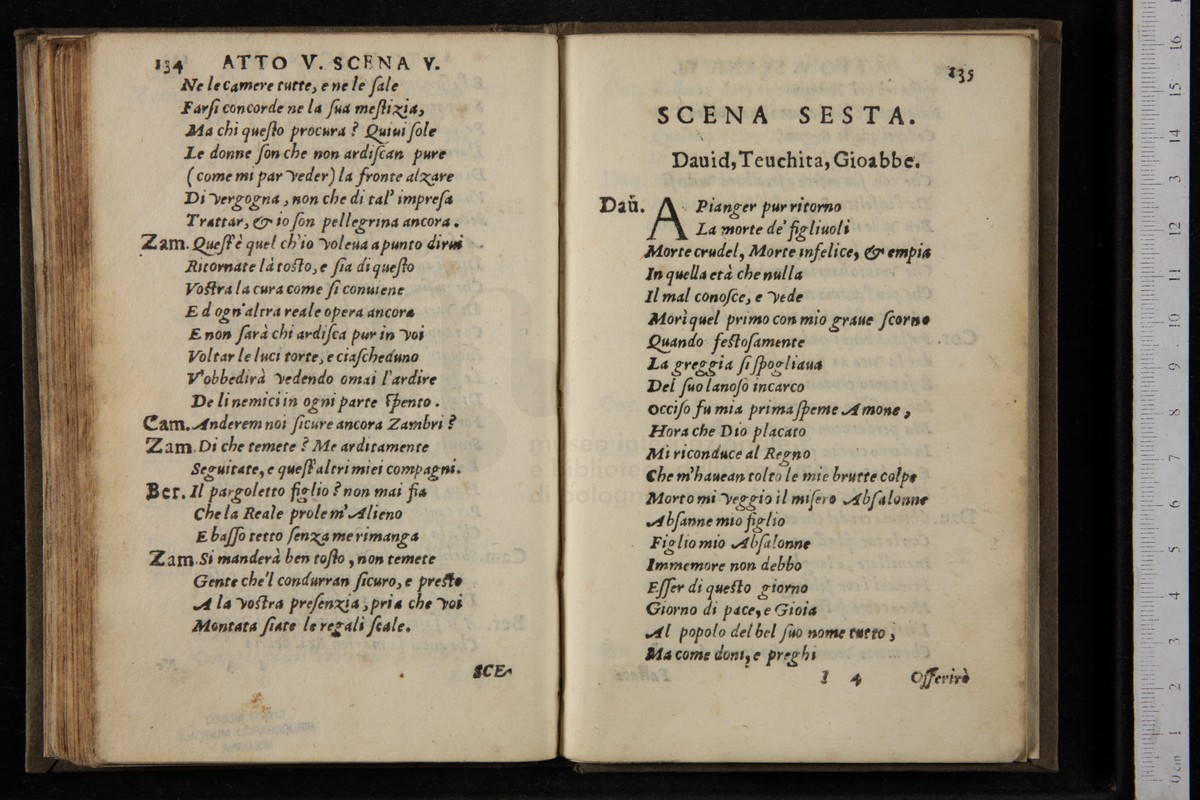 134 ATTO V. SCENA V.
Ne le camere tutte, e ne le ſale
Farſi concorde ne la ſua meſtizia,
Ma chi queſto procura ? Quiui ſole
Le donne ſon che non ardiſcan pure
( come mi par veder ) la fronte alzare
Di vergogna , non che di tal' impreſa
Trattar, & io ſon pellegrina ancora .
Zam. Queſt'è quel ch'io voleua apunto dirui
Ritornate là toſto, e ſia di queſto
Voſtra la cura come ſi conuiene
E d ogn'altra reale opera ancora
E non ſarà chi ardiſca pur in voi
Voltar le luci torte, e ciaſcheduno
V'obbedirà vedendo omai l'ardire
De li nemici in ogni parte ſpento .
Cam. Anderem noi ſicure ancora Zambri ?
Zam. Di che temete ? Me arditamente
Seguitate, e queſt'altri miei compagni.
Ber. Il pargoletto figlio ? non mai fia
Che la Reale prole m'Alieno
E baſſo tetto ſenza me rimanga
Zam. Si manderà ben toſto , non temete
Gente che'l condurran ſicuro, e preſto
A la voſtra preſenzia , pria che voi
Montata ſiate le regali ſcale.
SCE-
135
SCENA SESTA.
Dauid, Teuchita, Gioabbe.
Daũ. A Pianger pur ritorno
La morte de' figliuoli
Morte crudel, Morte infelice, & empia
In quella età che nulla
Il mal conoſce, e vede
Morì quel primo con mio graue ſcorno
Quando feſtoſamente
La greggia ſi ſpogliaua
Del ſuo lanoſo incarco
Occiſo fu mia prima ſpeme Amone ,
Hora che Dio placato
Mi riconduce al Regno
Che m'hauean tolto le mie brutte colpe
Morto mi veggio il miſero Abſalonne
Abſanne mio figlio
Figlio mio Abſalonne
Immemore non debbo
Eſſer di queſto giorno
Giorno di pace, e Gioia
Al popolo del bel ſuo nome tutto ,
Ma come doni, e preghi
I 4 Offerirò